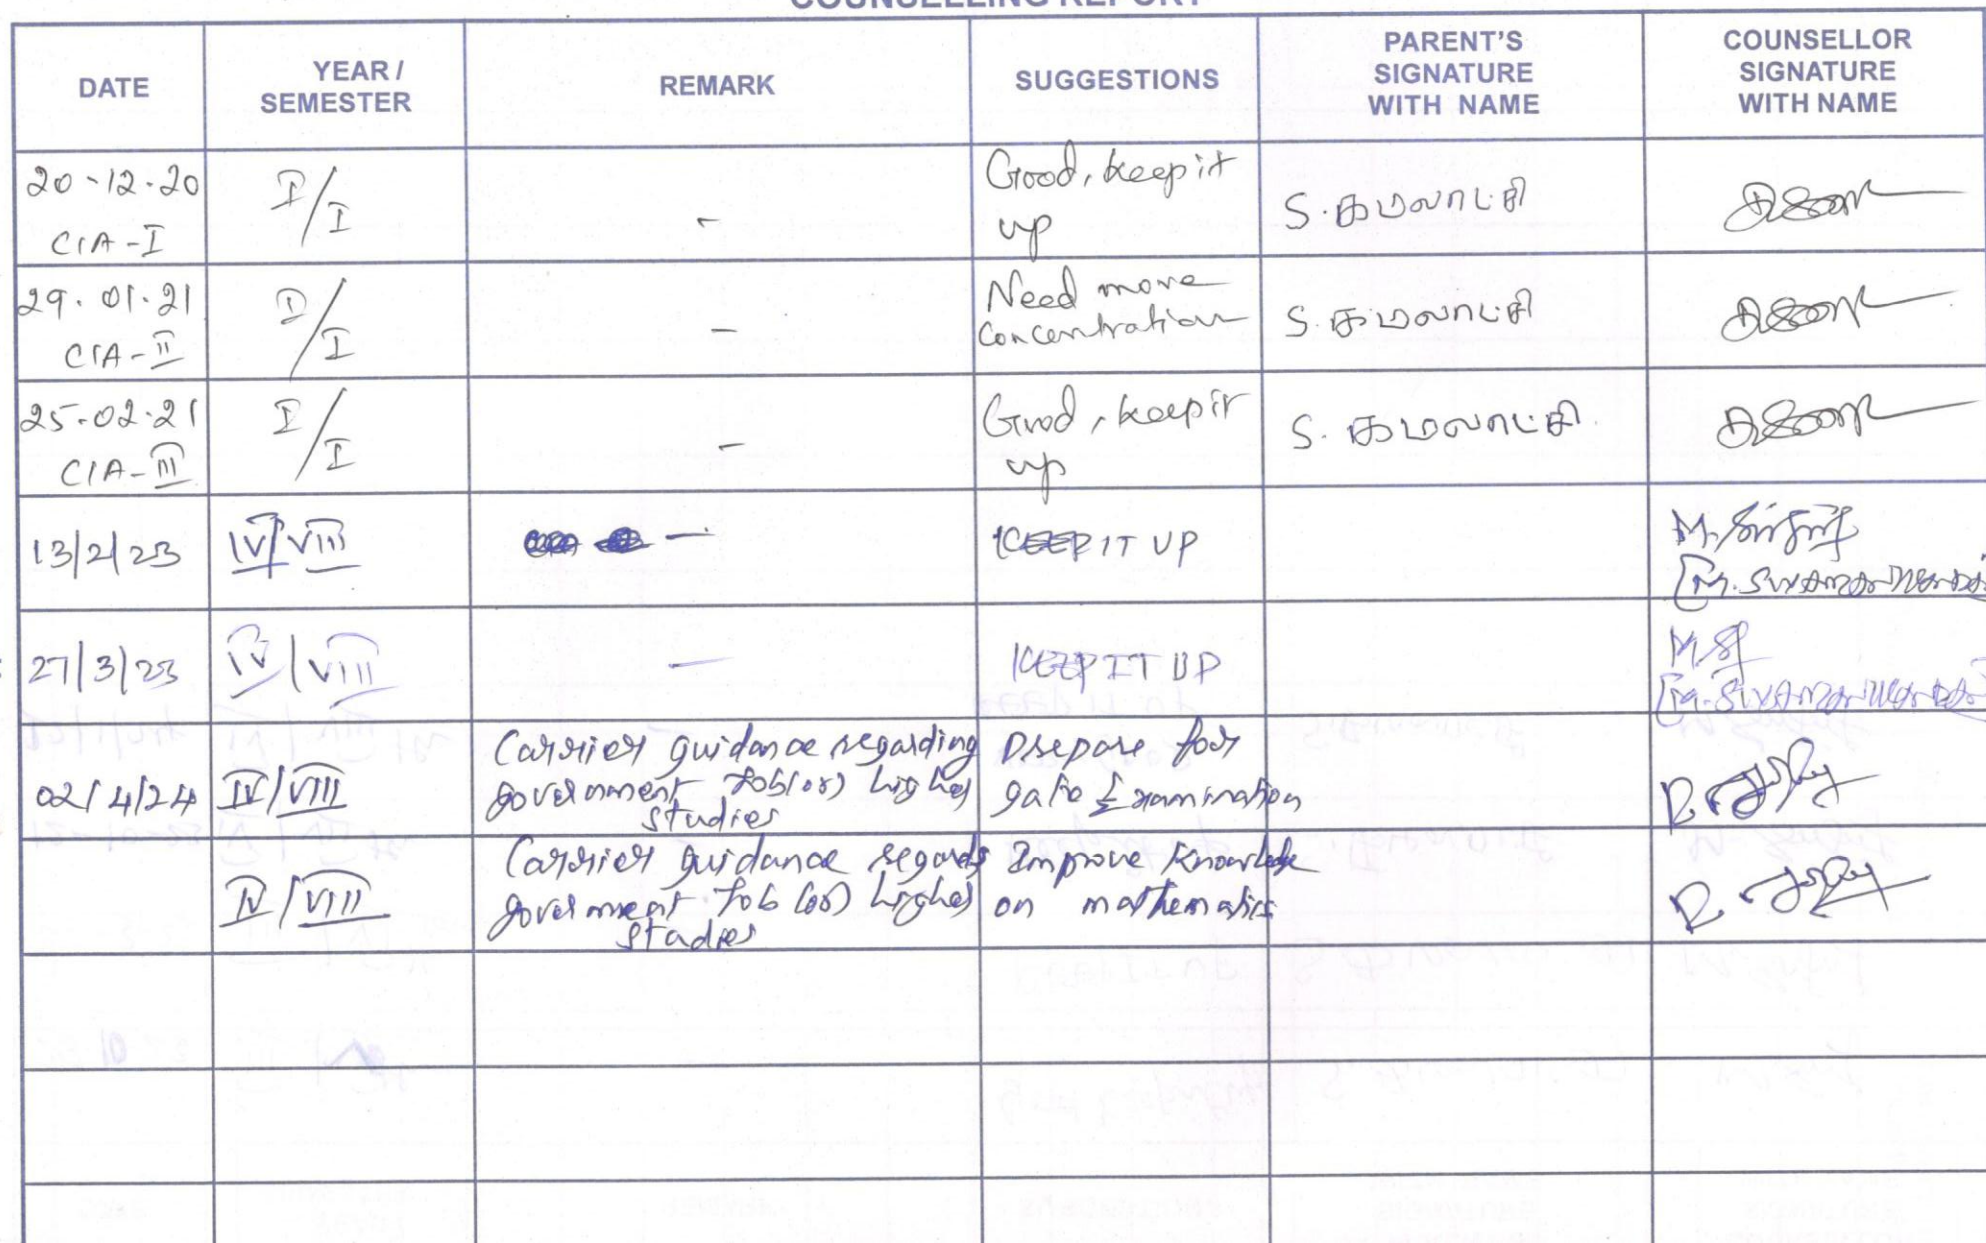 COUNSELLING REPORT
DATE
YEAR /
SEMESTER
REMARK
SUGGESTIONS
PARENT'S
SIGNATURE
WITH NAME
COUNSELLOR
SIGNATURE
WITH NAME
20-12-20
CIA-I
I/I
-
Good, keep it
up
S. கமலாட்சி
29.01.21
CIA-II
I/I
-
Need more
concentration
S. கமலாட்சி
25-02-21
CIA-III
I/I
-
Good, keep it
up
S. கமலாட்சி
13/2/23
IV/VIII
-
KEEP IT UP
27/3/23
IV/VIII
-
KEEP IT UP
02/4/24
IV/VIII
Carrier guidance regarding
government Job (or) higher
studies
Prepare for
gate Examination
IV/VIII
Carrier guidance regards
government Job (or) higher
studies
Improve Knowledge
on mathematics